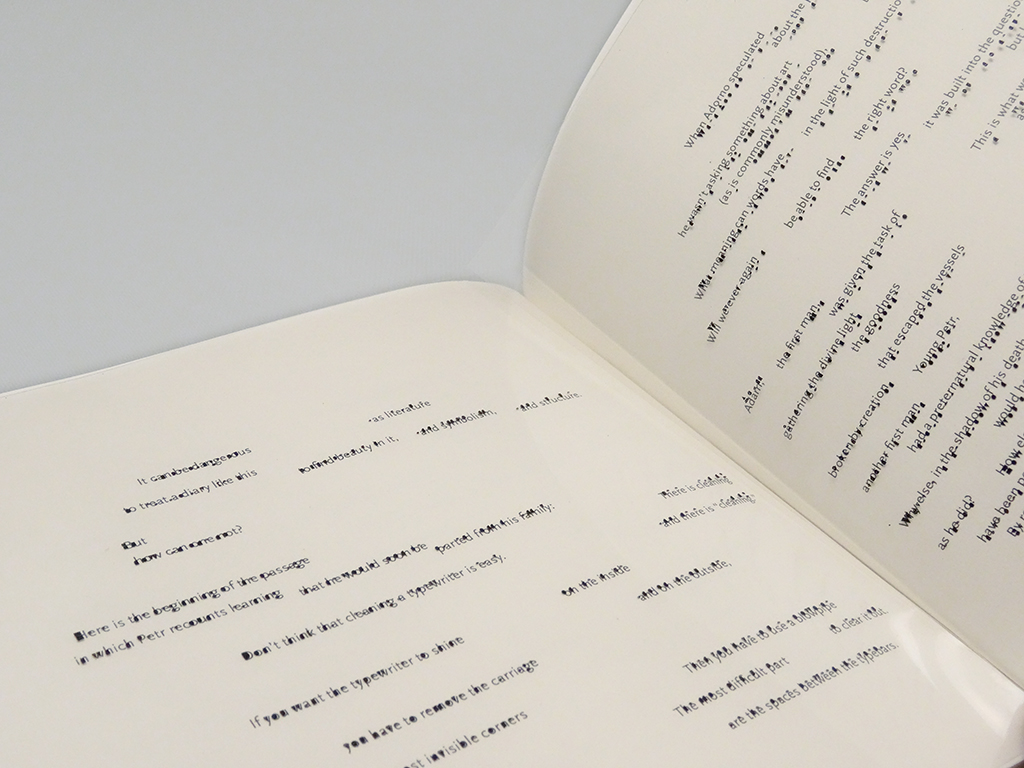 as literature
It can be dangerous
to find beauty in it, and symbolism, and structure.
to treat a diary like this
But
how can one not?
There is cleaning
And there is "cleaning"
Here is the beginning of the passage
that he would soon be parted from his family:
in which Petr recounts learning
Don't think that cleaning a typewriter is easy.
on the inside
and on the outside,
If you want the typewriter to shine
you have to remove the carriage
invisible corners
Then you have to use a blowpipe
to clear it out.
The most difficult part
are the spaces between the typebars.
When Adorno speculated
about the
he wasn't asking something about art
(as is commonly misunderstood),
in the light of such
What meaning can words have
the right word?
be able to find
Will we ever again
The answer is yes
it was built into the question
but
This is what
Adam
the first man,
was given the task of
gathering the divine light
the goodness
that escaped the vessels
broken by creation.
Young Petr,
another first man,
had a preternatural knowledge of
in the shadow of his death
Why else,
would he
as he did?
How else
have been
By